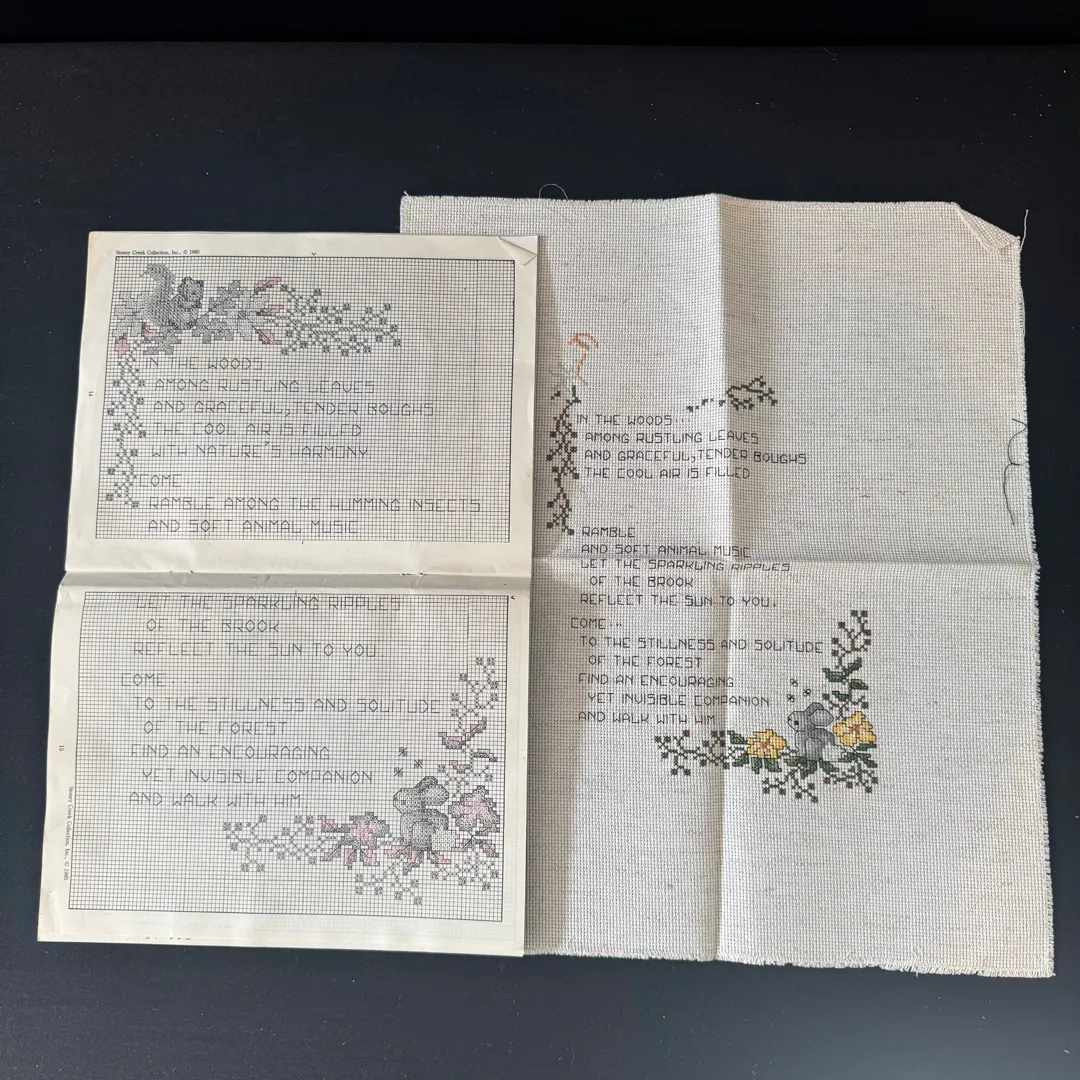 Stoney Creek Collection, Inc., © 1985
IN THE WOODS
AMONG RUSTLING LEAVES
AND GRACEFUL, TENDER BOUGHS
THE COOL AIR IS FILLED
WITH NATURE'S HARMONY
COME...
RAMBLE AMONG THE HUMMING INSECTS
AND SOFT ANIMAL MUSIC
14
LET THE SPARKLING RIPPLES
OF THE BROOK
REFLECT THE SUN TO YOU.
COME...
TO THE STILLNESS AND SOLITUDE
OF THE FOREST
FIND AN ENCOURAGING
YET INVISIBLE COMPANION
AND WALK WITH HIM
15
Stoney Creek Collection, Inc. © 1985
IN THE WOODS...
AMONG RUSTLING LEAVES
AND GRACEFUL, TENDER BOUGHS
THE COOL AIR IS FILLED
RAMBLE
AND SOFT ANIMAL MUSIC
LET THE SPARKLING RIPPLES
OF THE BROOK
REFLECT THE SUN TO YOU.
COME...
TO THE STILLNESS AND SOLITUDE
OF THE FOREST
FIND AN ENCOURAGING
YET INVISIBLE COMPANION
AND WALK WITH HIM